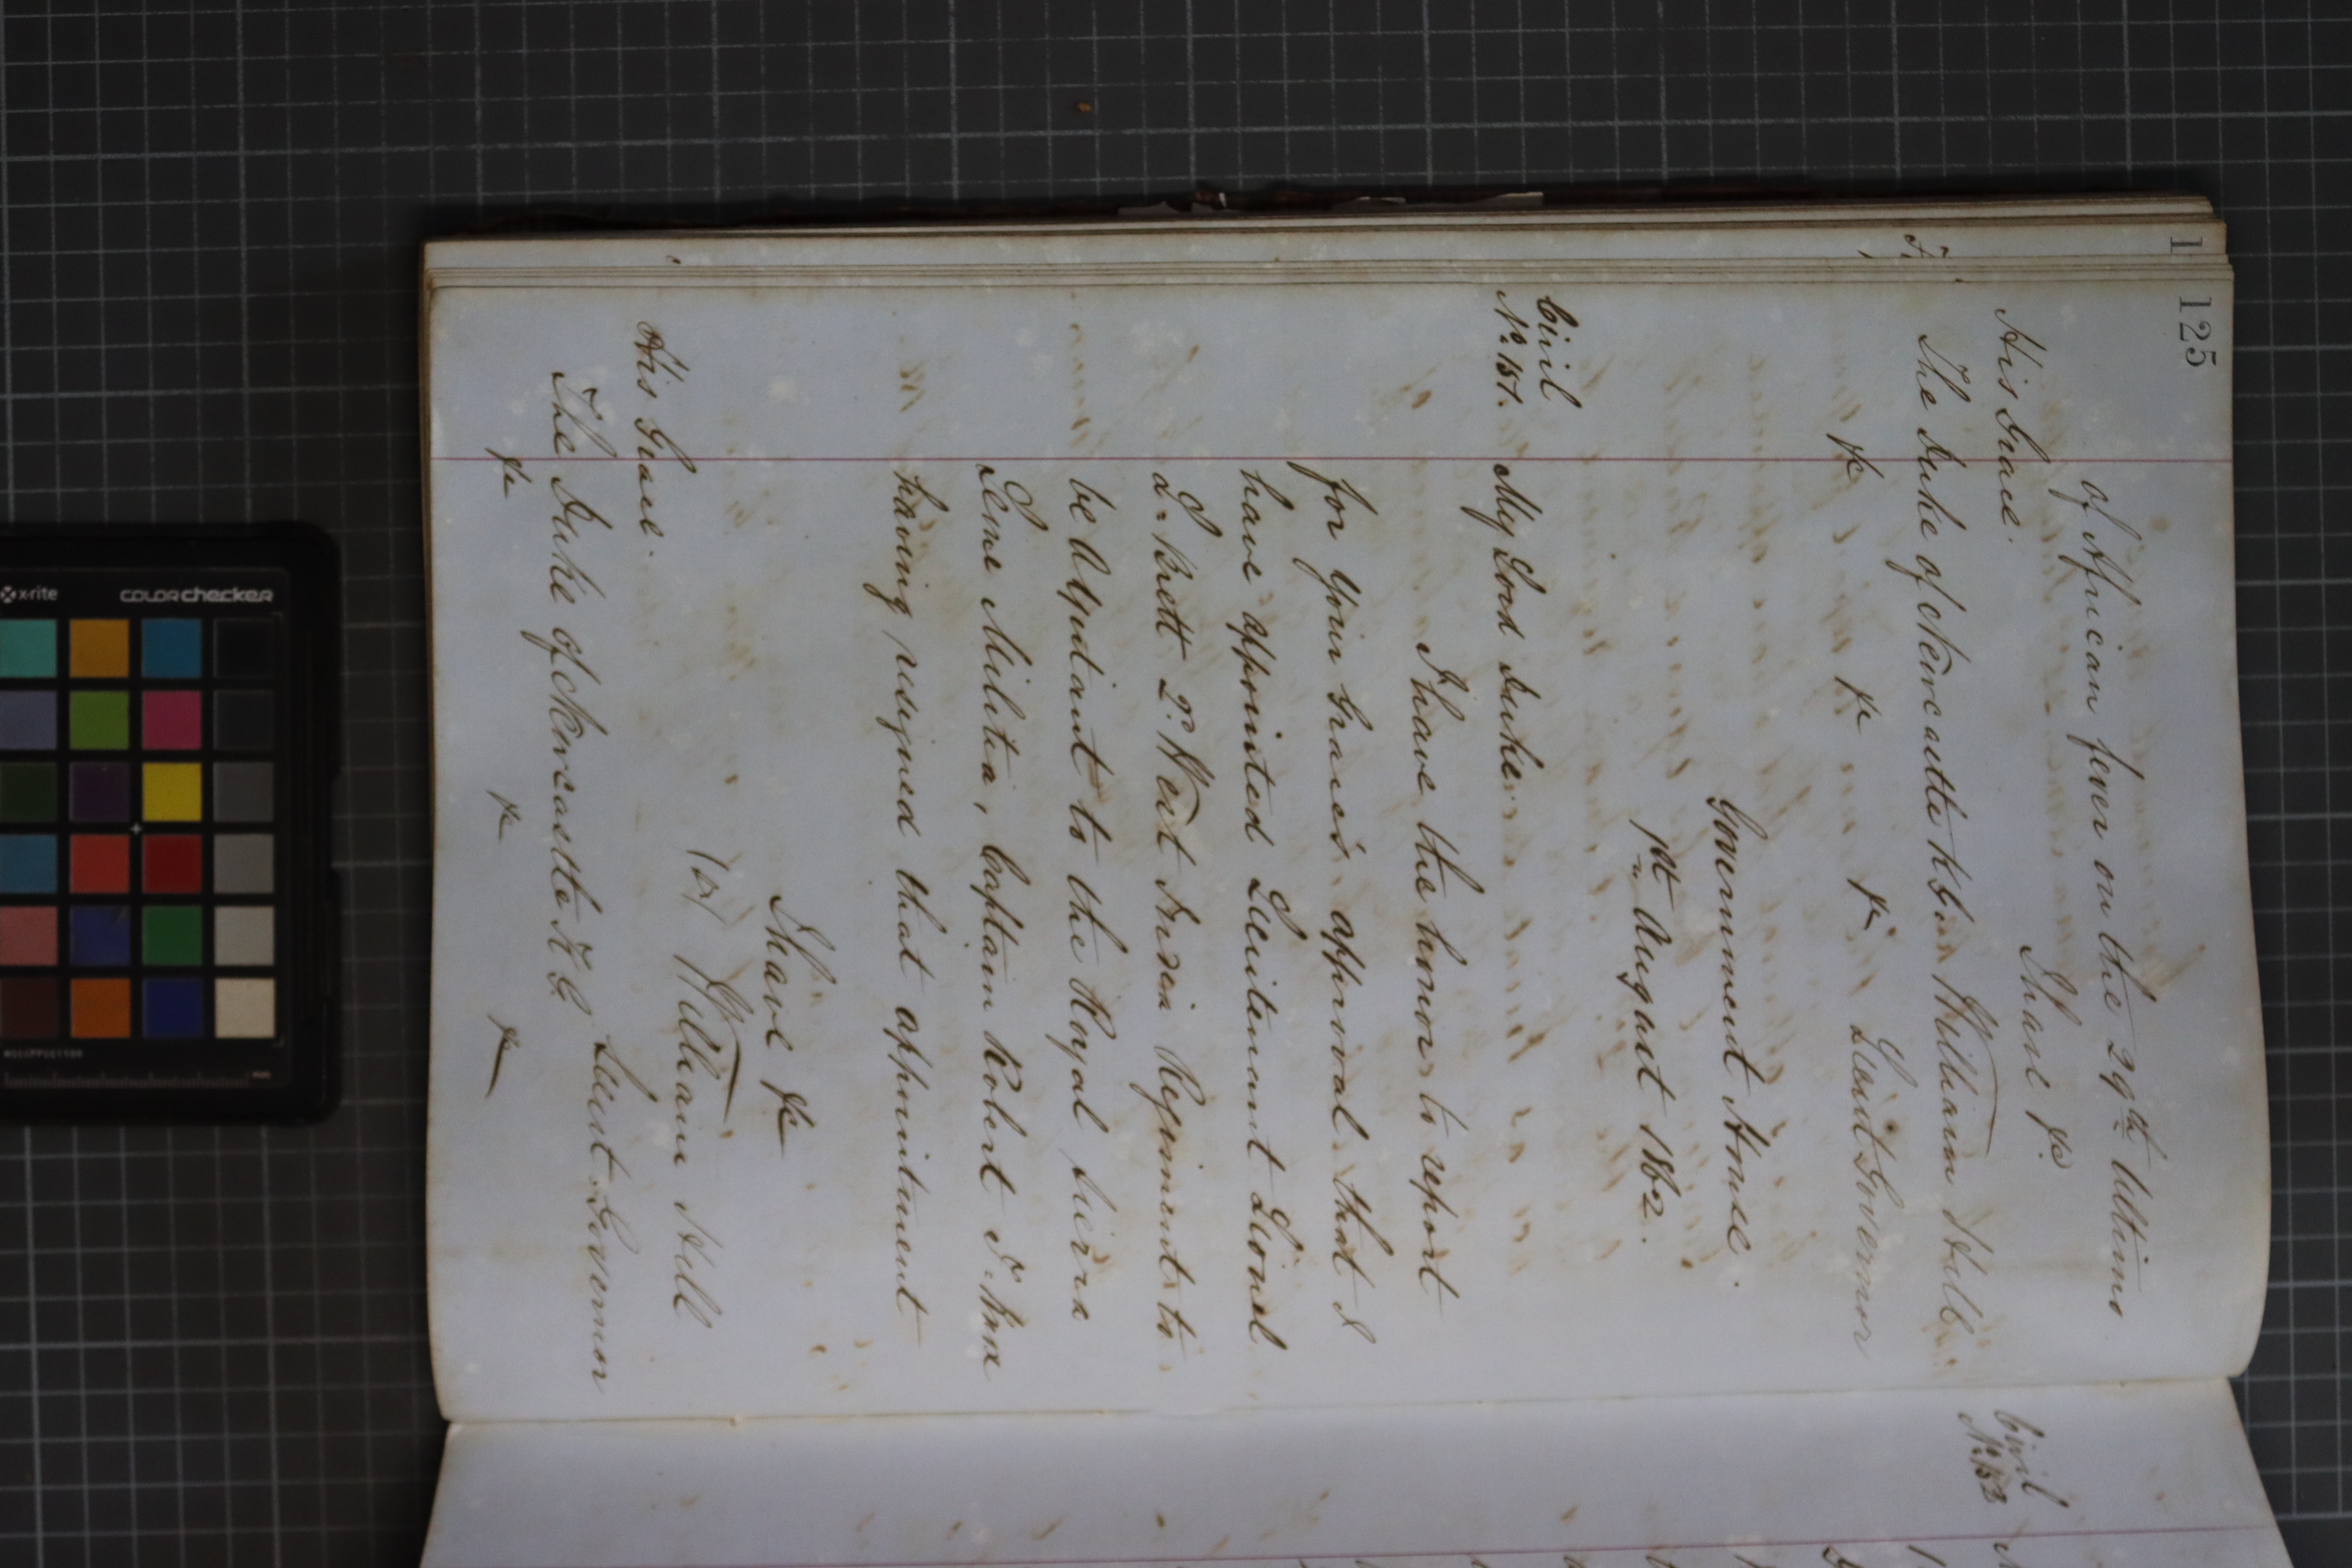 125
of African fever on the 29th Ultimo
I have &c.
His Grace.
The Duke of Newcastle K.G. William Hill
&c &c &c Lieut Governor
Government House.
1st August 1862.
Civil
No. 151. My Lord Duke
I have the honor to report
for Your Grace's approval that I
have appointed Lieutenant Lionel
D. Brett 2d. West India Regiment to
be Adjutant to the Royal Sierra
Leone Militia, Captain Robert
having resigned that appointment
I have &c
William Hill
His Grace. Lieut. Governor
The Duke of Newcastle K.G.
&c &c &c
Civil